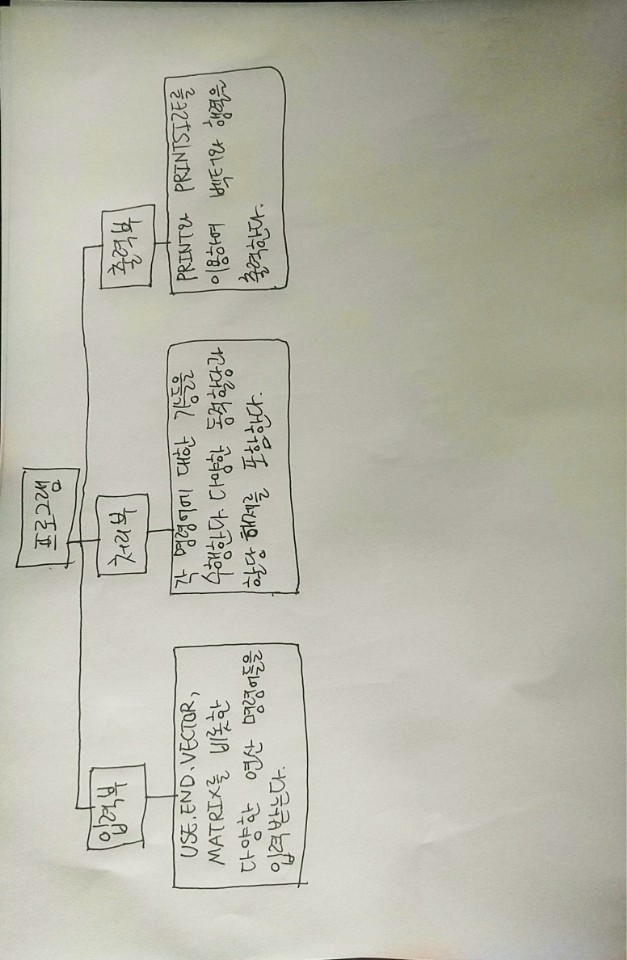 프로그램
입력부
처리부
출력부
USE.END.VECTOR,
MATRIX를 비롯한
다양한 연산 명령어들을
입력받는다.
각 명령어에 대한 기능들을
수행한다. 다양한 동적할당과
할당 해제를 포함한다.
PRINT와 PRINTSIZE를
이용하여 벡터와 행력을
출력한다.